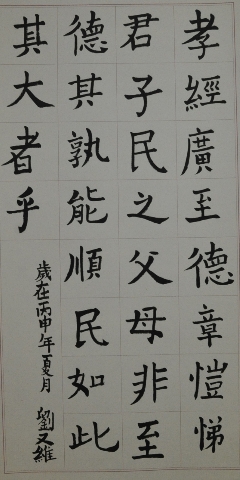 孝經廣至德章愷悌
君子民之父母非至
德其孰能順民如此
其大者乎
歲在丙申年夏月 劉又維